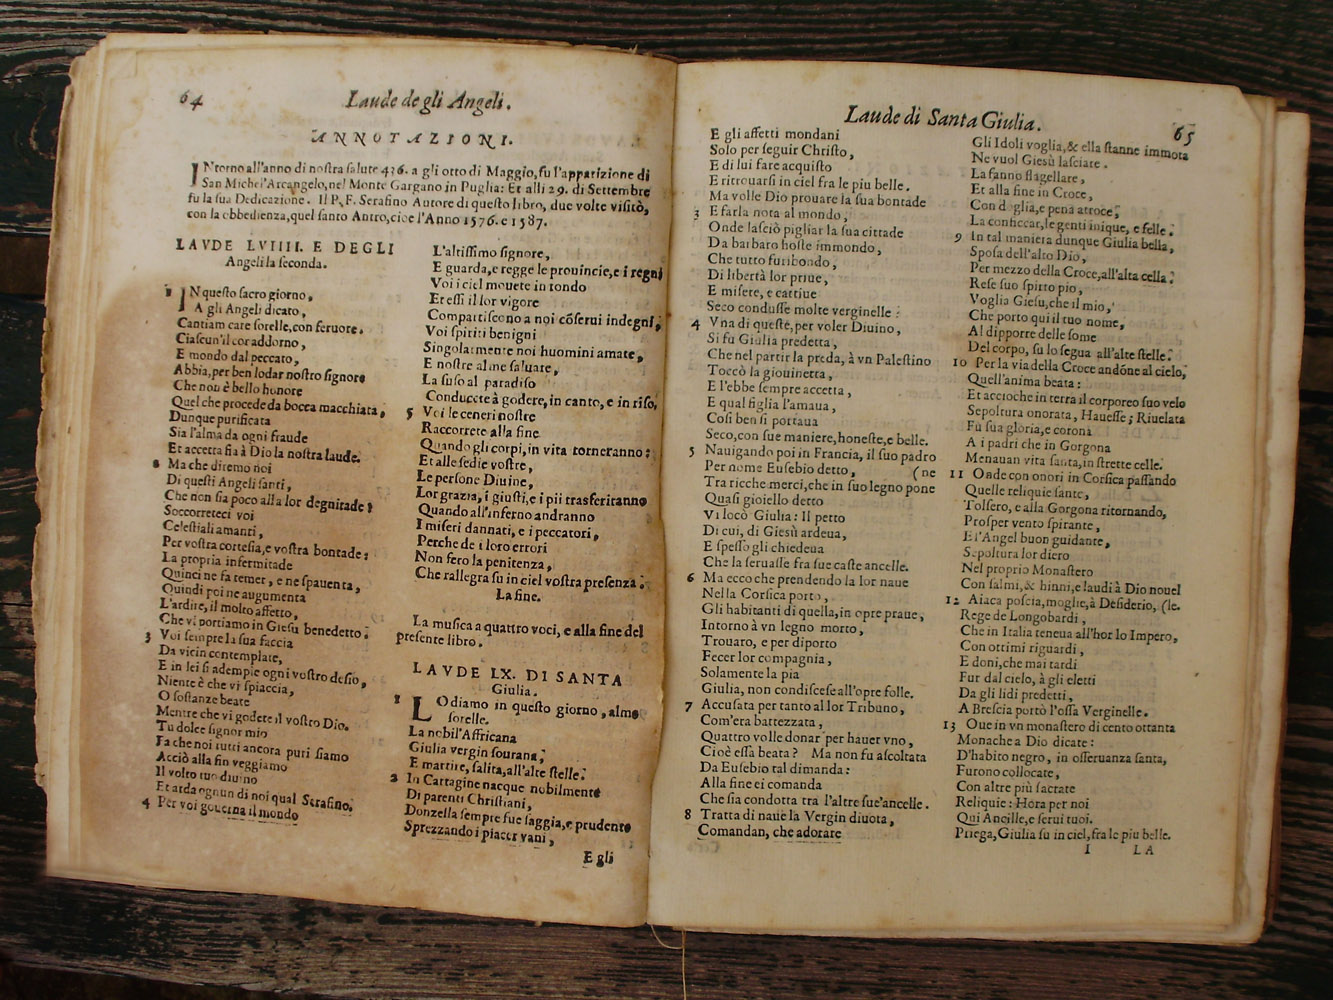 64
Laude de gli Angeli.
ANNOTAZIONI.
INtorno all'anno di nostra salute 436. a gli otto di Maggio, fu l'apparizione di
San Michel'Arcangelo, nel Monte Gargano in Puglia: Et alli 29. di Settembre
fu la sua Dedicazione. Il P. F. Serafino Autore di questo libro, due volte visitò,
con la obbedienza, quel santo Antro, cioè l'Anno 1576. e 1587.
LAVDE LVIIII. E DEGLI
Angeli la seconda.
1 IN questo sacro giorno,
A gli Angeli dicato,
Cantiam care sorelle, con feruore.
Ciascun'il cor addorno,
E mondo dal peccato,
Abbia, per ben lodar nostro signore
Che non è bello honore
Quel che procede da bocca macchiata,
Dunque purificata
Sia l'alma da ogni fraude
Et accetta fia à Dio la nostra laude.
2 Ma che diremo noi
Di questi Angeli santi,
Che non sia poco alla lor degnitade?
Soccorreteci voi
Celestiali amanti,
Per vostra cortesia, e vostra bontade:
La propria infermitade
Quinci ne fa temer, e ne spauenta,
Quindi poi ne augumenta
L'ardire, il molto affetto,
Che vi portiamo in Giesu benedetto.
3 Voi sempre la sua faccia
Da vicin contemplate,
E in lei si adempie ogni vostro desio,
Niente è che vi spiaccia,
O sostanze beate
Mentre che vi godete il vostro Dio.
Tu dolce signor mio
Fa che noi tutti ancora puri siamo
Acciò alla fin veggiamo
Il volto tuo diuino
Et arda ognun di noi qual Serafino.
4 Per voi gouerna il mondo
L'altissimo signore,
E guarda, e regge le prouincie, e i regni
Voi i ciel mouete in tondo
Et essi il lor vigore
Compartiscono a noi cõserui indegni,
Voi spiriti benigni
Singolarmente noi huomini amate,
E nostre alme saluate,
La suso al paradiso
Conducete à godere, in canto, e in riso,
5 Voi le ceneri nostre
Raccorrete alla fine
Quando gli corpi, in vita torneranno:
Et alle sedie vostre,
Le persone Diuine,
Lor grazia, i giusti, e i pii trasferiranno
Quando all'inferno andranno
I miseri dannati, e i peccatori,
Perche de i loro errori
Non fero la penitenza,
Che rallegra su in ciel vostra presenza.
La fine.
La musica a quattro voci, e alla fine del
presente libro.
LAVDE LX. DI SANTA
Giulia.
1 LOdiamo in questo giorno, alme
sorelle.
La nobil'Affricana
Giulia vergin sourana,
E martire, salita, all'alte stelle.
2 In Cartagine nacque nobilmente
Di parenti Christiani,
Donzella sempre fue saggia, e prudente
Sprezzando i piacer vani,
E gli
Laude di Santa Giulia.
65
E gli affetti mondani
Solo per seguir Christo,
E di lui fare acquisto
E ritrouarsi in ciel fra le piu belle.
Ma volle Dio prouare la sua bontade
3 E farla nota al mondo,
Onde lasciò pigliar la sua cittade
Da barbaro hoste immondo,
Che tutto furibondo,
Di libertà lor priue,
E misere, e cattiue
Seco condusse molte verginelle:
4 Vna di queste, per voler Diuino,
Si fu Giulia predetta,
Che nel partir la preda, à vn Palestino
Toccò la giouinetta,
E l'ebbe sempre accetta,
E qual figlia l'amaua,
Così ben si portaua
Seco, con sue maniere, honeste, e belle.
5 Nauigando poi in Francia, il suo padro
Per nome Eusebio detto, (ne
Tra ricche merci, che in suo legno pone
Quasi gioiello detto
Vi locò Giulia: Il petto
Di cui, di Giesù ardeua,
E spesso gli chiedeua
Che la seruasse fra sue caste ancelle.
6 Ma ecco che prendendo la lor naue
Nella Corsica porto,
Gli habitanti di quella, in opre praue,
Intorno à vn legno morto,
Trouaro, e per diporto
Fecer lor compagnia,
Solamente la pia
Giulia, non condiscese all'opre folle.
7 Accusata per tanto al lor Tribuno,
Com'era battezzata,
Quattro volle donar per hauer vno,
Cioè essa beata? Ma non fu ascoltata
Da Eusebio tal dimanda:
Alla fine ei comanda
Che sia condotta tra l'altre sue'ancelle.
8 Tratta di naue la Vergin diuota,
Comandan, che adorare
Gli Idoli voglia, & ella stanne immota
Ne vuol Giesù lasciare.
La fanno flagellare,
Et alla fine in Croce,
Con doglia, e pena atroce,
La conficcar, le genti inique, e felle.
9 In tal maniera dunque Giulia bella,
Sposa dell'alto Dio,
Per mezzo della Croce, all'alta cella
Rese suo spirto pio,
Voglia Giesu, che il mio,
Che porto qui il tuo nome,
Al dipporre delle some
Del corpo, su lo segua all'alte stelle.
10 Per la via della Croce andóne al cielo,
Quell'anima beata:
Et accioche in terra il corporeo suo velo
Sepoltura onorata, Hauesse; Riuelata
Fu sua gloria, e corona
A i padri che in Gorgona
Menauan vita santa, in strette celle.
11 Onde con onori in Corsica passando
Quelle reliquie sante,
Tolsero, e alla Gorgona ritornando,
Prosper vento spirante,
E l'Angel buon guidante,
Sepoltura lor diero
Nel proprio Monastero
Con salmi, & hinni, e laudi à Dio nouel
12 Aiaca poscia, moglie, à Desiderio, (le.
Rege de Longobardi,
Che in Italia teneua all'hor lo Impero,
Con ottimi riguardi,
E doni, che mai tardi
Fur dal cielo, à gli eletti
Da gli lidi predetti,
A Brescia portò l'ossa Verginelle.
13 Oue in vn monastero di cento ottanta
Monache a Dio dicate:
D'habito negro, in osseruanza santa,
Furono collocate,
Con altre più sacrate
Reliquie: Hora per noi
Qui Ancille, e serui tuoi.
Priega, Giulia su in ciel, fra le piu belle.
I LA